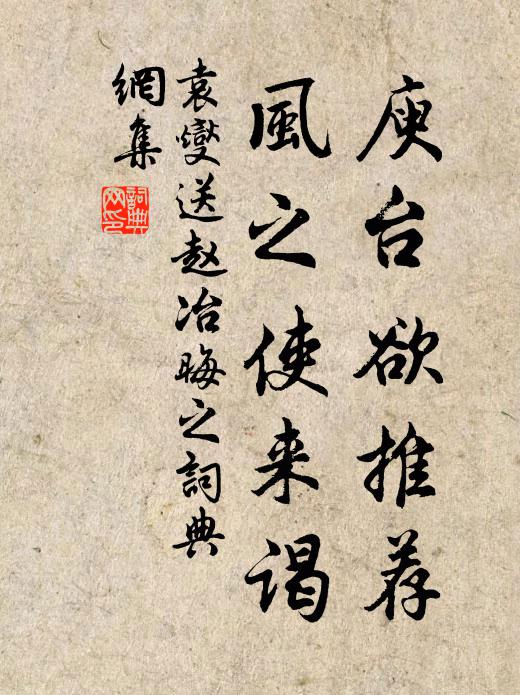 庾台欲推荐
風之使来谒
袁燮送赵冶晦之詞典
網集
詞典
网印